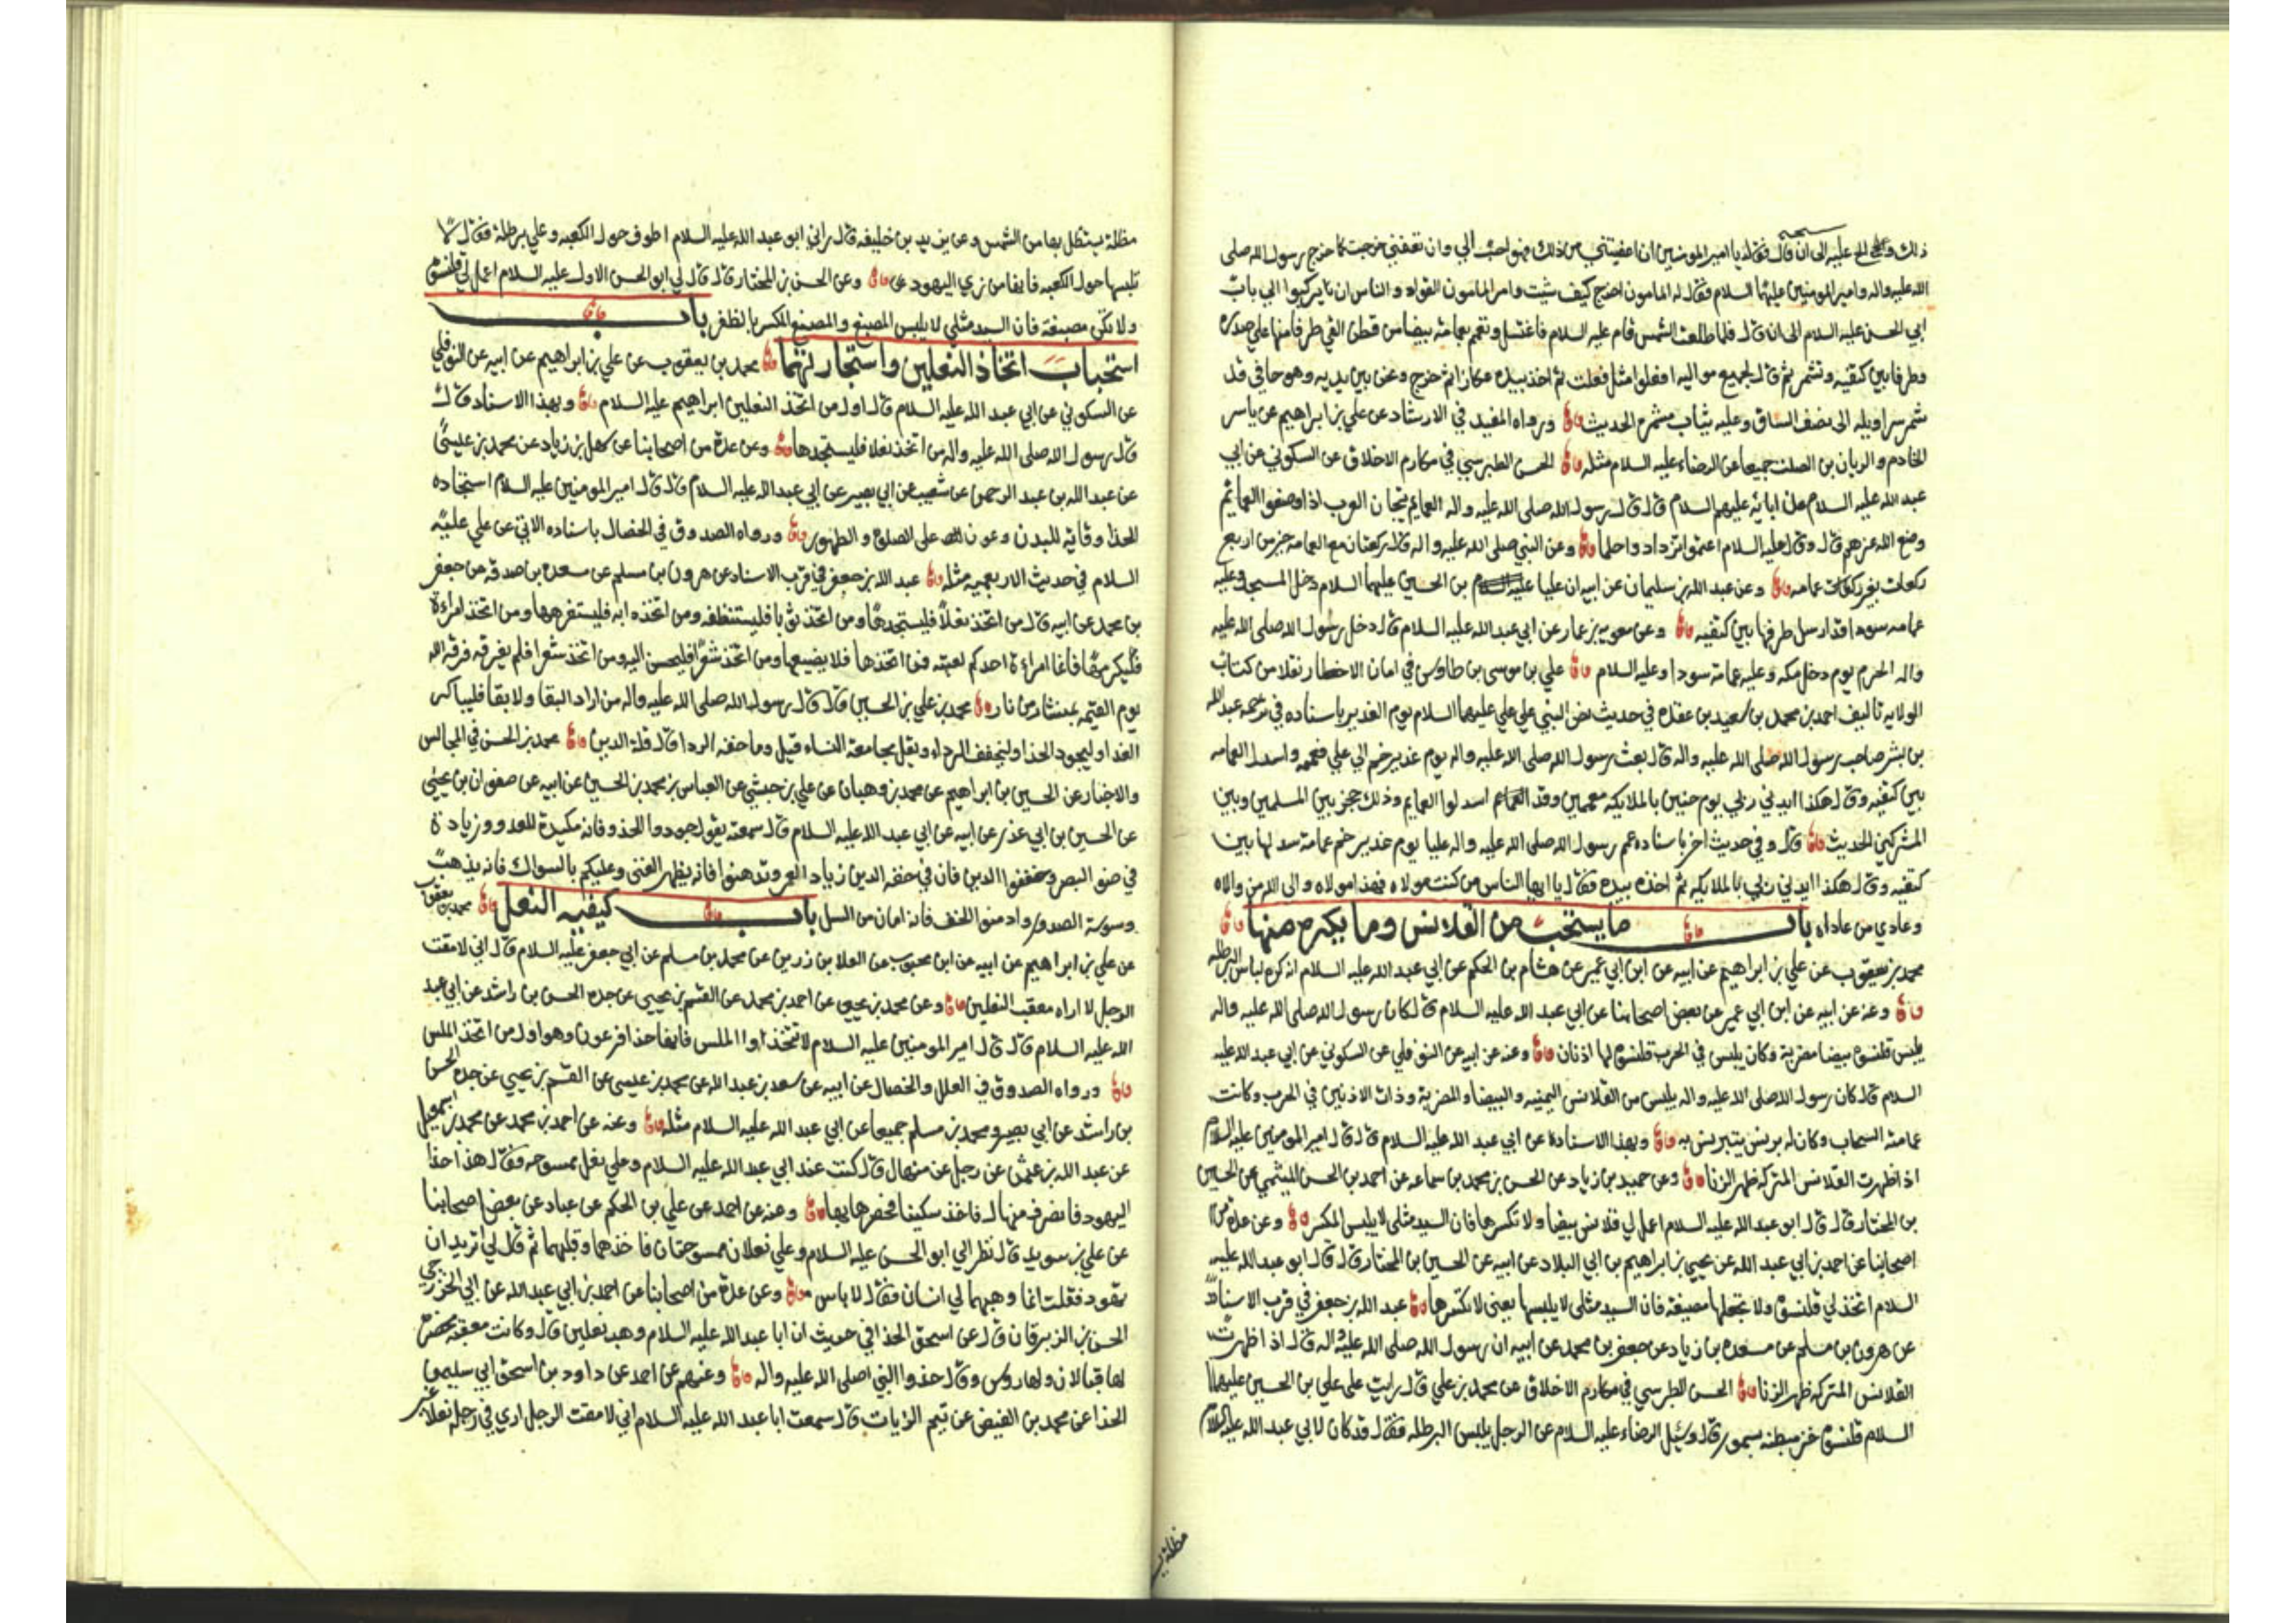 ذلك والح عليه الى ان قال فقال يا امير المومنين ان اعفيتني من ذلك فهو احب الي وان تعفني خرجت كما خرج رسول الله صلى
الله عليه واله وامير المومنين عليهما السلام فقال له المامون اخرج كيف شيت وامر المامون القواد والناس ان يركبوا الي باب
ابي الحسن عليه السلام الى ان قال فلما طلعت الشمس قام عليه السلام فاغتسل وتعمم بعمامة بيضا من قطن القي طرفا منها على صدره
وطرفا بين كتفيه وتشمر ثم قال لجميع مواليه افعلوا مثل فعلت ثم اخذ بيده عكازا ثم خرج ونحن بين يديه وهو حافي قد
شمر سراويله الى نصف الساق وعليه ثياب مشمرة الحديث ورواه المفيد في الارشاد عن علي بن ابراهيم عن ياسر
الخادم والريان بن الصلت جميعا عن الرضاء عليه السلام مثله الحسن الطبرسي في مكارم الاخلاق عن السكوني عن ابي
عبد الله عليه السلام عن ابائه عليهم السلام قال قال رسول الله صلى الله عليه واله العمايم تيجان العرب اذا وضعوا العمايم
وضع الله عزهم قال وقال عليه السلام اعتموا تزدادوا حلما وعن النبي صلى الله عليه واله قال ركعتان مع العمامه خير من اربع
ركعات بغير عمامه وعن عبد الله بن سليمان عن ابيه ان عليا بن الحسين عليهما السلام دخل المسجد وعليه
عمامه سودا قد ارسل طرفها بين كتفيه وعن معويه بن عمار عن ابي عبد الله عليه السلام قال دخل رسول الله صلى الله عليه
واله الحرم يوم دخل مكه وعليه عمامة سودا وعليه السلام علي بن موسى بن طاوس في امان الاخطار نقلا من كتاب
الولايه تاليف احمد بن محمد بن سعيد بن عقده في حديث نص النبي علي علي عليهما السلام يوم الغدير باسناده في ترجمة عبد الله
بن بشر صاحب رسول الله صلى الله عليه واله قال بعث رسول الله صلى الله عليه واله يوم غدير خم الي علي فعممه واسدل العمامه
بين كتفيه وقال هكذا ايدني ربي يوم حنين بالملايكه معممين وقد اسدلوا العمايم وذلك حجز بين المسلمين وبين
المشركين الحديث قال وفي حديث اخر باسناده عمم رسول الله صلى الله عليه واله عليا يوم غدير خم عمامة سدلها بين
كتفيه وقال هكذا ايدني ربي بالملايكه ثم اخذ بيده فقال يا ايها الناس من كنت مولاه فهذا مولاه والى الله من والاه
وعادي من عاداه باب ما يستحب من القلانس وما يكره منها
محمد بن يعقوب عن علي بن ابراهيم عن ابيه عن ابن ابي عمير عن هشام بن الحكم عن ابي عبد الله عليه السلام انه كره لباس البرطله
وعنه عن ابيه عن ابن ابي عمير عن بعض اصحابنا عن ابي عبد الله عليه السلام قال كان رسول الله صلى الله عليه واله
يلبس قلنسوة بيضا مضربة وكان يلبس في الحرب قلنسوة لها اذنان وعنه عن ابيه عن النوفلي عن السكوني عن ابي عبد الله عليه
السلام قال كان رسول الله صلى الله عليه واله يلبس من القلانس اليمنيه والبيضا والمضربة وذات الاذنين في الحرب وكانت
عمامته السحاب وكان له برنس يتبرنس به وبهذا الاسناد عن ابي عبد الله عليه السلام قال قال امير المومنين عليه السلام
اذا ظهرت القلانس المتركه ظهر الزنا وعن حميد بن زياد عن الحسن بن محمد بن سماعه عن احمد بن الحسن الميثمي عن الحسين
بن المختار قال قال ابو عبد الله عليه السلام اعمل لي قلانس بيضا ولا تكسرها فان السيد مثلي لا يلبس المكسر وعن عدة من
اصحابنا عن احمد بن ابي عبد الله عن يحيي بن ابراهيم بن ابي البلاد عن ابيه عن الحسين بن المختار قال قال ابو عبد الله عليه
السلام اتخذ لي قلنسوة ولا تجعلها مصبغة فان السيد مثلي لا يلبسها يعني لا تكسرها عبد الله بن جعفر في قرب الاسناد
عن هرون بن مسلم عن مسعده بن زياد عن جعفر بن محمد عن ابيه ان رسول الله صلى الله عليه واله قال اذا ظهرت
القلانس المتركه ظهر الزنا الحسن الطبرسي في مكارم الاخلاق عن محمد بن علي قال رايت على علي بن الحسين عليهما
السلام قلنسوة خز مبطنه بسمور قال وسئل الرضاء عليه السلام عن الرجل يلبس البرطله فقال قد كان لابي عبد الله عليه السلام
مظلة
مظلة يستظل بها من الشمس وعن يزيد بن خليفه قال راني ابو عبد الله عليه السلام اطوف حول الكعبه وعلي برطلة فقال لا
تلبسها حول الكعبه فانها من زي اليهود وعن الحسن بن المختار قال قال لي ابو الحسن الاول عليه السلام اعمل لي قلنسوة
ولا تكن مصبغة فان السيد مثلي لا يلبس المصبغ والمصبغ المكسر بالظفر باب
استحباب اتخاذ النعلين واستجادتهما محمد بن يعقوب عن علي بن ابراهيم عن ابيه عن النوفلي
عن السكوني عن ابي عبد الله عليه السلام قال اول من اتخذ النعلين ابراهيم عليه السلام وبهذا الاسناد قال
قال رسول الله صلى الله عليه واله من اتخذ نعلا فليستجدها وعن عدة من اصحابنا عن سهل بن زياد عن محمد بن عيسى
عن عبد الله بن عبد الرحمن عن شعيب عن ابي بصير عن ابي عبد الله عليه السلام قال قال امير المومنين عليه السلام استجاده
الحذا وقاية للبدن وعون على الصلوة والطهور ورواه الصدوق في الخصال باسناده الاتي عن علي عليه
السلام في حديث الاربعميه مثله عبد الله بن جعفر في قرب الاسناد عن هرون بن مسلم عن مسعده بن صدقه عن جعفر
بن محمد عن ابيه قال من اتخذ نعلا فليستجدها ومن اتخذ ثوبا فليستنظفه ومن اتخذ دابه فليستفرهها ومن اتخذ امراءة
فليكرمها فانما امراءة احدكم لعبته فمن اتخذها فلا يضيعها ومن اتخذ شعرا فليحسن اليه ومن اتخذ شعرا فلم يفرقه فرقه الله
يوم القيمه بمنشار من نار محمد بن علي بن الحسين قال قال رسول الله صلى الله عليه واله من اراد البقا ولا بقا فليباكر
الغدا وليجود الحذا وليخفف الرداء وليقل مجامعة النساء قيل وما خفه الردا قال قلة الدين محمد بن الحسن في المجالس
والاخبار عن الحسين بن ابراهيم عن محمد بن وهبان عن علي بن حبشي عن العباس بن محمد بن الحسين عن ابيه عن صفوان بن يحيي
عن الحسين بن ابي غندر عن ابيه عن ابي عبد الله عليه السلام قال سمعته يقول جودوا الحذو فانه مكيدة للعدو وزيادة
في ضو البصر وخففوا الدين فان في خفه الدين زيادة العمر وتدهنوا فانه يظهر الغنى وعليكم بالسواك فانه يذهب
وسوسة الصدور وادمنوا الخف فانه امان من السل باب كيفيه النعل محمد بن يعقوب
عن علي بن ابراهيم عن ابيه عن ابن محبوب عن العلا بن رزين عن محمد بن مسلم عن ابي جعفر عليه السلام قال اني لامقت
الرجل لا اراه معقب النعلين وعن محمد بن يحيى عن احمد بن محمد عن القسم بن يحيى عن جده الحسن بن راشد عن ابي عبد
الله عليه السلام قال قال امير المومنين عليه السلام لا تتخذوا الملس فانها حذا فرعون وهو اول من اتخذ الملس
ورواه الصدوق في العلل والخصال عن ابيه عن سعد بن عبد الله عن محمد بن عيسى عن القسم بن يحيي عن جده الحسن
بن راشد عن ابي بصير ومحمد بن مسلم جميعا عن ابي عبد الله عليه السلام مثله وعنه عن احمد بن محمد عن محمد بن اسمعيل
عن عبد الله بن عثمن عن رجل عن منهال قال كنت عند ابي عبد الله عليه السلام وعلي نعل ممسوحه فقال هذا حذا
اليهود فانصرف منهال فاخذ سكينا فخصرها بها وعنه عن احمد عن علي بن الحكم عن عباد عن بعض اصحابنا
عن علي بن سويد قال نظر الي ابو الحسن عليه السلام وعلي نعلان ممسوحتان فاخذهما وقلبهما ثم قال لي اتريد ان
تهود فقلت انما وهبهما لي انسان فقال لا باس وعن عدة من اصحابنا عن احمد بن ابي عبد الله عن ابي الخزرجي
الحسن بن الزبرقان قال عن اسحق الحذا في حديث ان ابا عبد الله عليه السلام وهبه نعلين قال وكانت معقبه مخصرة
لها قبالان ولها روس وقال حذوا النبي صلى الله عليه واله وعنهم عن احمد عن داود بن اسحق ابي سليمن
الحذا عن محمد بن الفيض عن تيم الزيات قال سمعت ابا عبد الله عليه السلام اني لامقت الرجل اري في رجله نعلا غير